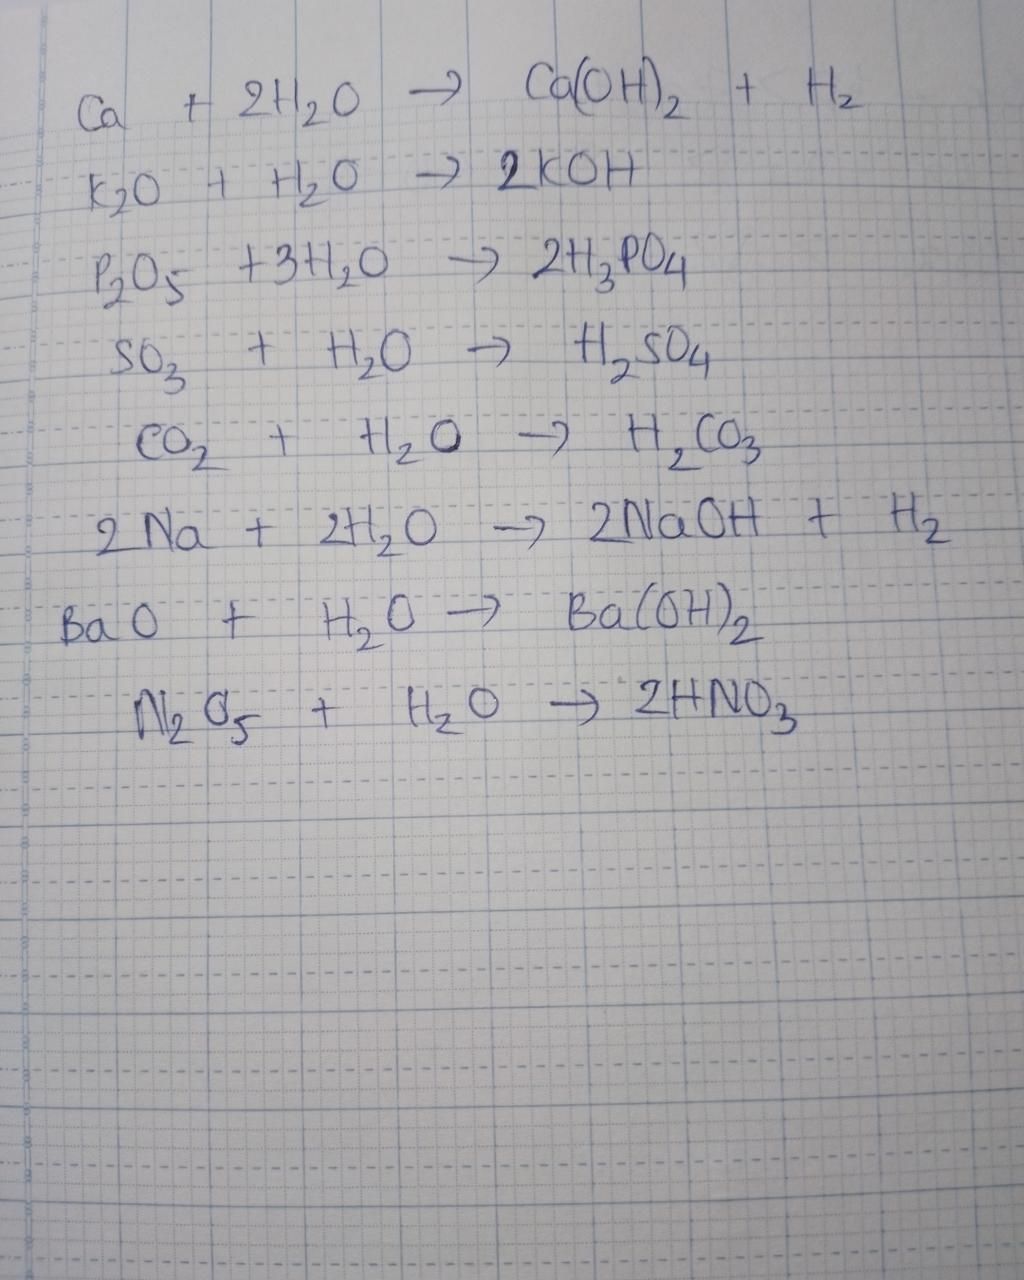 Ca + 2H₂O → Ca(OH)₂ + H₂
K₂O + H₂O → 2KOH
P₂O₅ + 3H₂O → 2H₃PO₄
SO₃ + H₂O → H₂SO₄
CO₂ + H₂O → H₂CO₃
2Na + 2H₂O → 2NaOH + H₂
BaO + H₂O → Ba(OH)₂
N₂O₅ + H₂O → 2HNO₃